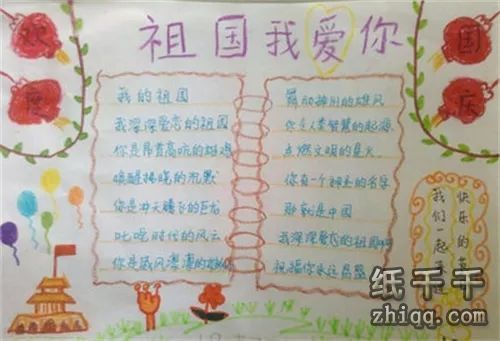 欢度
国庆
祖国我爱你
我的祖国
我深深爱恋的祖国
你是昂首高吭的雄鸡
唤醒拂晓的沉默
你是冲天腾飞的巨龙
叱咤时代的风云
你是威风凛凛的
舞动神州的雄风
你是人类智慧的起源
点燃文明的星火
你有一个神圣的名字
那就是中国
我深深爱恋的祖国啊
祝福你永远昌盛
快乐的节
我们一起
纸千千
zhiqq.com